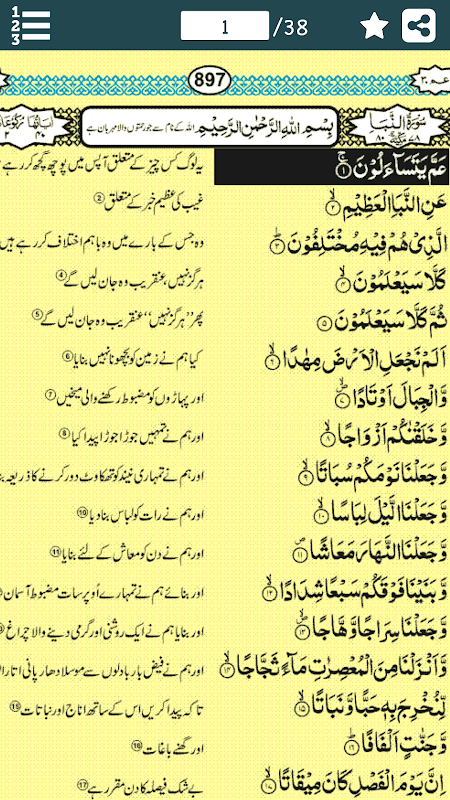 1 2 3 1 /38
897
عم ٣٠
سُوْرَةُ النَّبَاِ
بِسْمِ اللهِ الرَّحْمٰنِ الرَّحِيْمِ اللہ کے نام سے جو رحمتوں والا مہربان ہے
عَمَّ يَتَسَآءَلُوْنَ ۝١ یہ لوگ کس چیز کے متعلق آپس میں پوچھ گچھ کر رہے
عَنِ النَّبَاِ الْعَظِيْمِ ۝٢ غیب کی عظیم خبر کے متعلق ②
الَّذِىْ هُمْ فِيْهِ مُخْتَلِفُوْنَ ۝٣ وہ جس کے بارے میں وہ باہم اختلاف کر رہے ہیں
كَلَّا سَيَعْلَمُوْنَ ۝٤ ہرگز نہیں، عنقریب وہ جان لیں گے ④
ثُمَّ كَلَّا سَيَعْلَمُوْنَ ۝٥ پھر ’’ہرگز نہیں‘‘ عنقریب وہ جان لیں گے ⑤
اَلَمْ نَجْعَلِ الْاَرْضَ مِهٰدًا ۝٦ کیا ہم نے زمین کو بچھونا نہیں بنایا ⑥
وَّالْجِبَالَ اَوْتَادًا ۝٧ اور پہاڑوں کو مضبوط رکھنے والی میخیں ⑦
وَّخَلَقْنٰكُمْ اَزْوَاجًا ۝٨ اور ہم نے تمہیں جوڑا جوڑا پیدا کیا ⑧
وَّجَعَلْنَا نَوْمَكُمْ سُبَاتًا ۝٩ اور ہم نے تمہاری نیند کو تھکاوٹ دور کرنے کا ذریعہ
وَّجَعَلْنَا الَّيْلَ لِبَاسًا ۝١٠ اور ہم نے رات کو لباس بنا دیا ⑩
وَّجَعَلْنَا النَّهَارَ مَعَاشًا ۝١١ اور ہم نے دن کو معاش کے لئے بنایا ⑪
وَّبَنَيْنَا فَوْقَكُمْ سَبْعًا شِدَادًا ۝١٢ اور بنائے ہم نے تمہارے اُوپر سات مضبوط آسمان
وَّجَعَلْنَا سِرَاجًا وَّهَّاجًا ۝١٣ اور بنایا ہم نے ایک روشنی اور گرمی دینے والا چراغ
وَّاَنْزَلْنَا مِنَ الْمُعْصِرٰتِ مَآءً ثَجَّاجًا ۝١٤ اور ہم نے فیض بار بادلوں سے موسلا دھار پانی اتارا
لِّنُخْرِجَ بِهٖ حَبًّا وَّنَبَاتًا ۝١٥ تا کہ پیدا کریں اس کے ساتھ اناج اور نباتات ⑮
وَّجَنّٰتٍ اَلْفَافًا ۝١٦ اور گھنے باغات ⑯
اِنَّ يَوْمَ الْفَصْلِ كَانَ مِيْقَاتًا ۝١٧ بے شک فیصلہ کا دن مقرر ہے ⑰